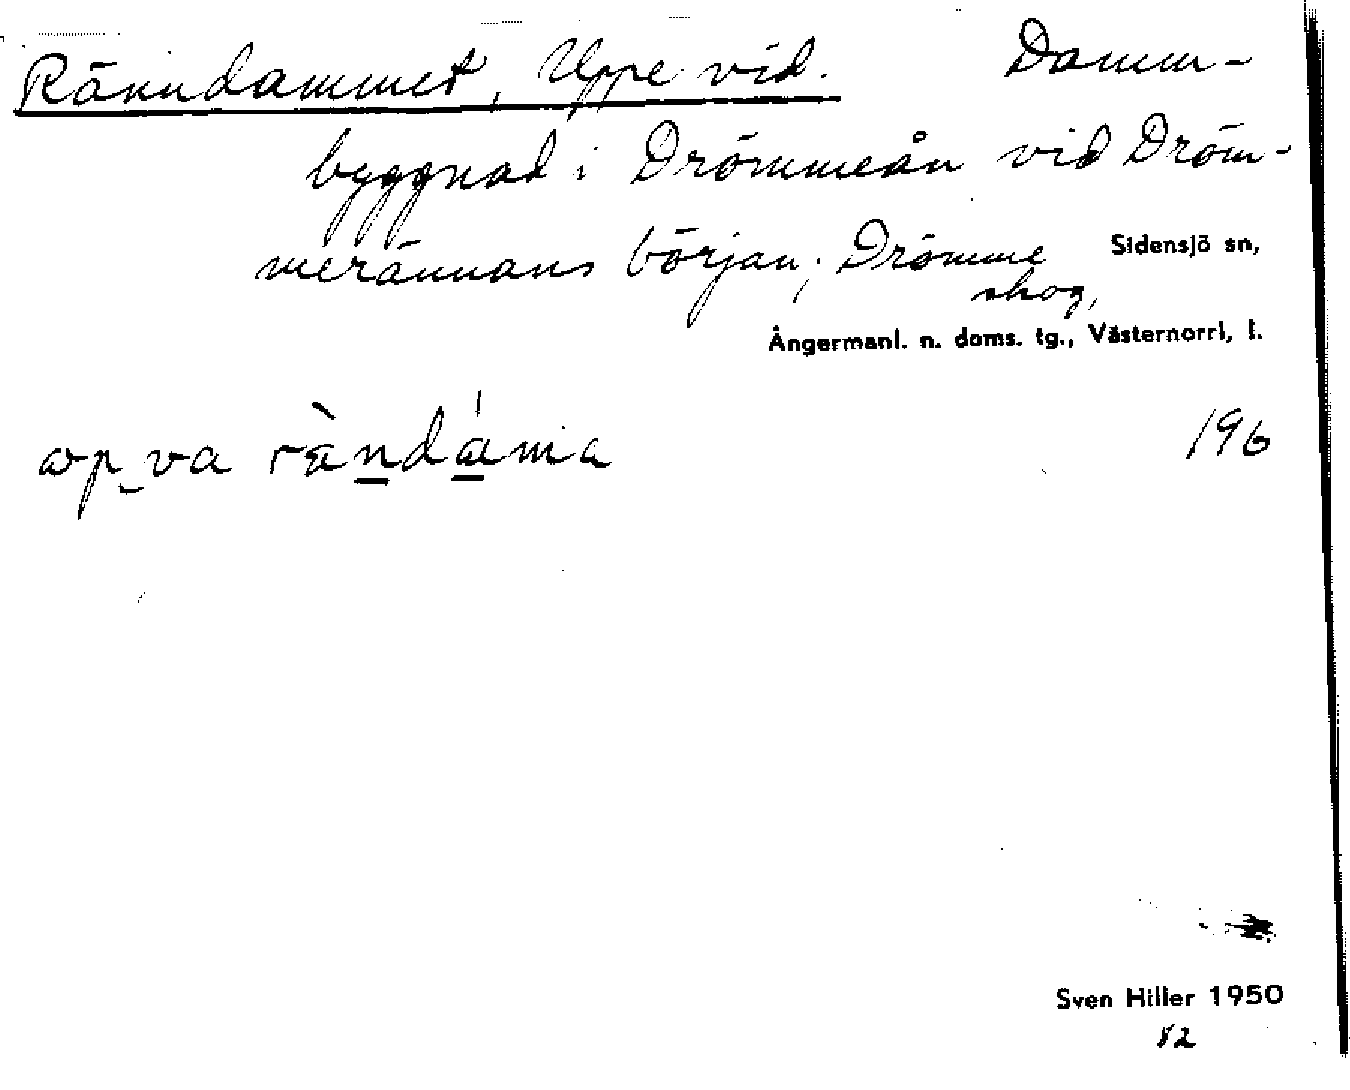 Ränndammet, Uppe vid. Damm-
byggnad i Drömmeån vid Dröm-
merännans början; Drömme
skog,
Sidensjö sn,
Ångermanl. n. doms. tg., Västernorrl, l.
196
Sven Hiller 1950
82